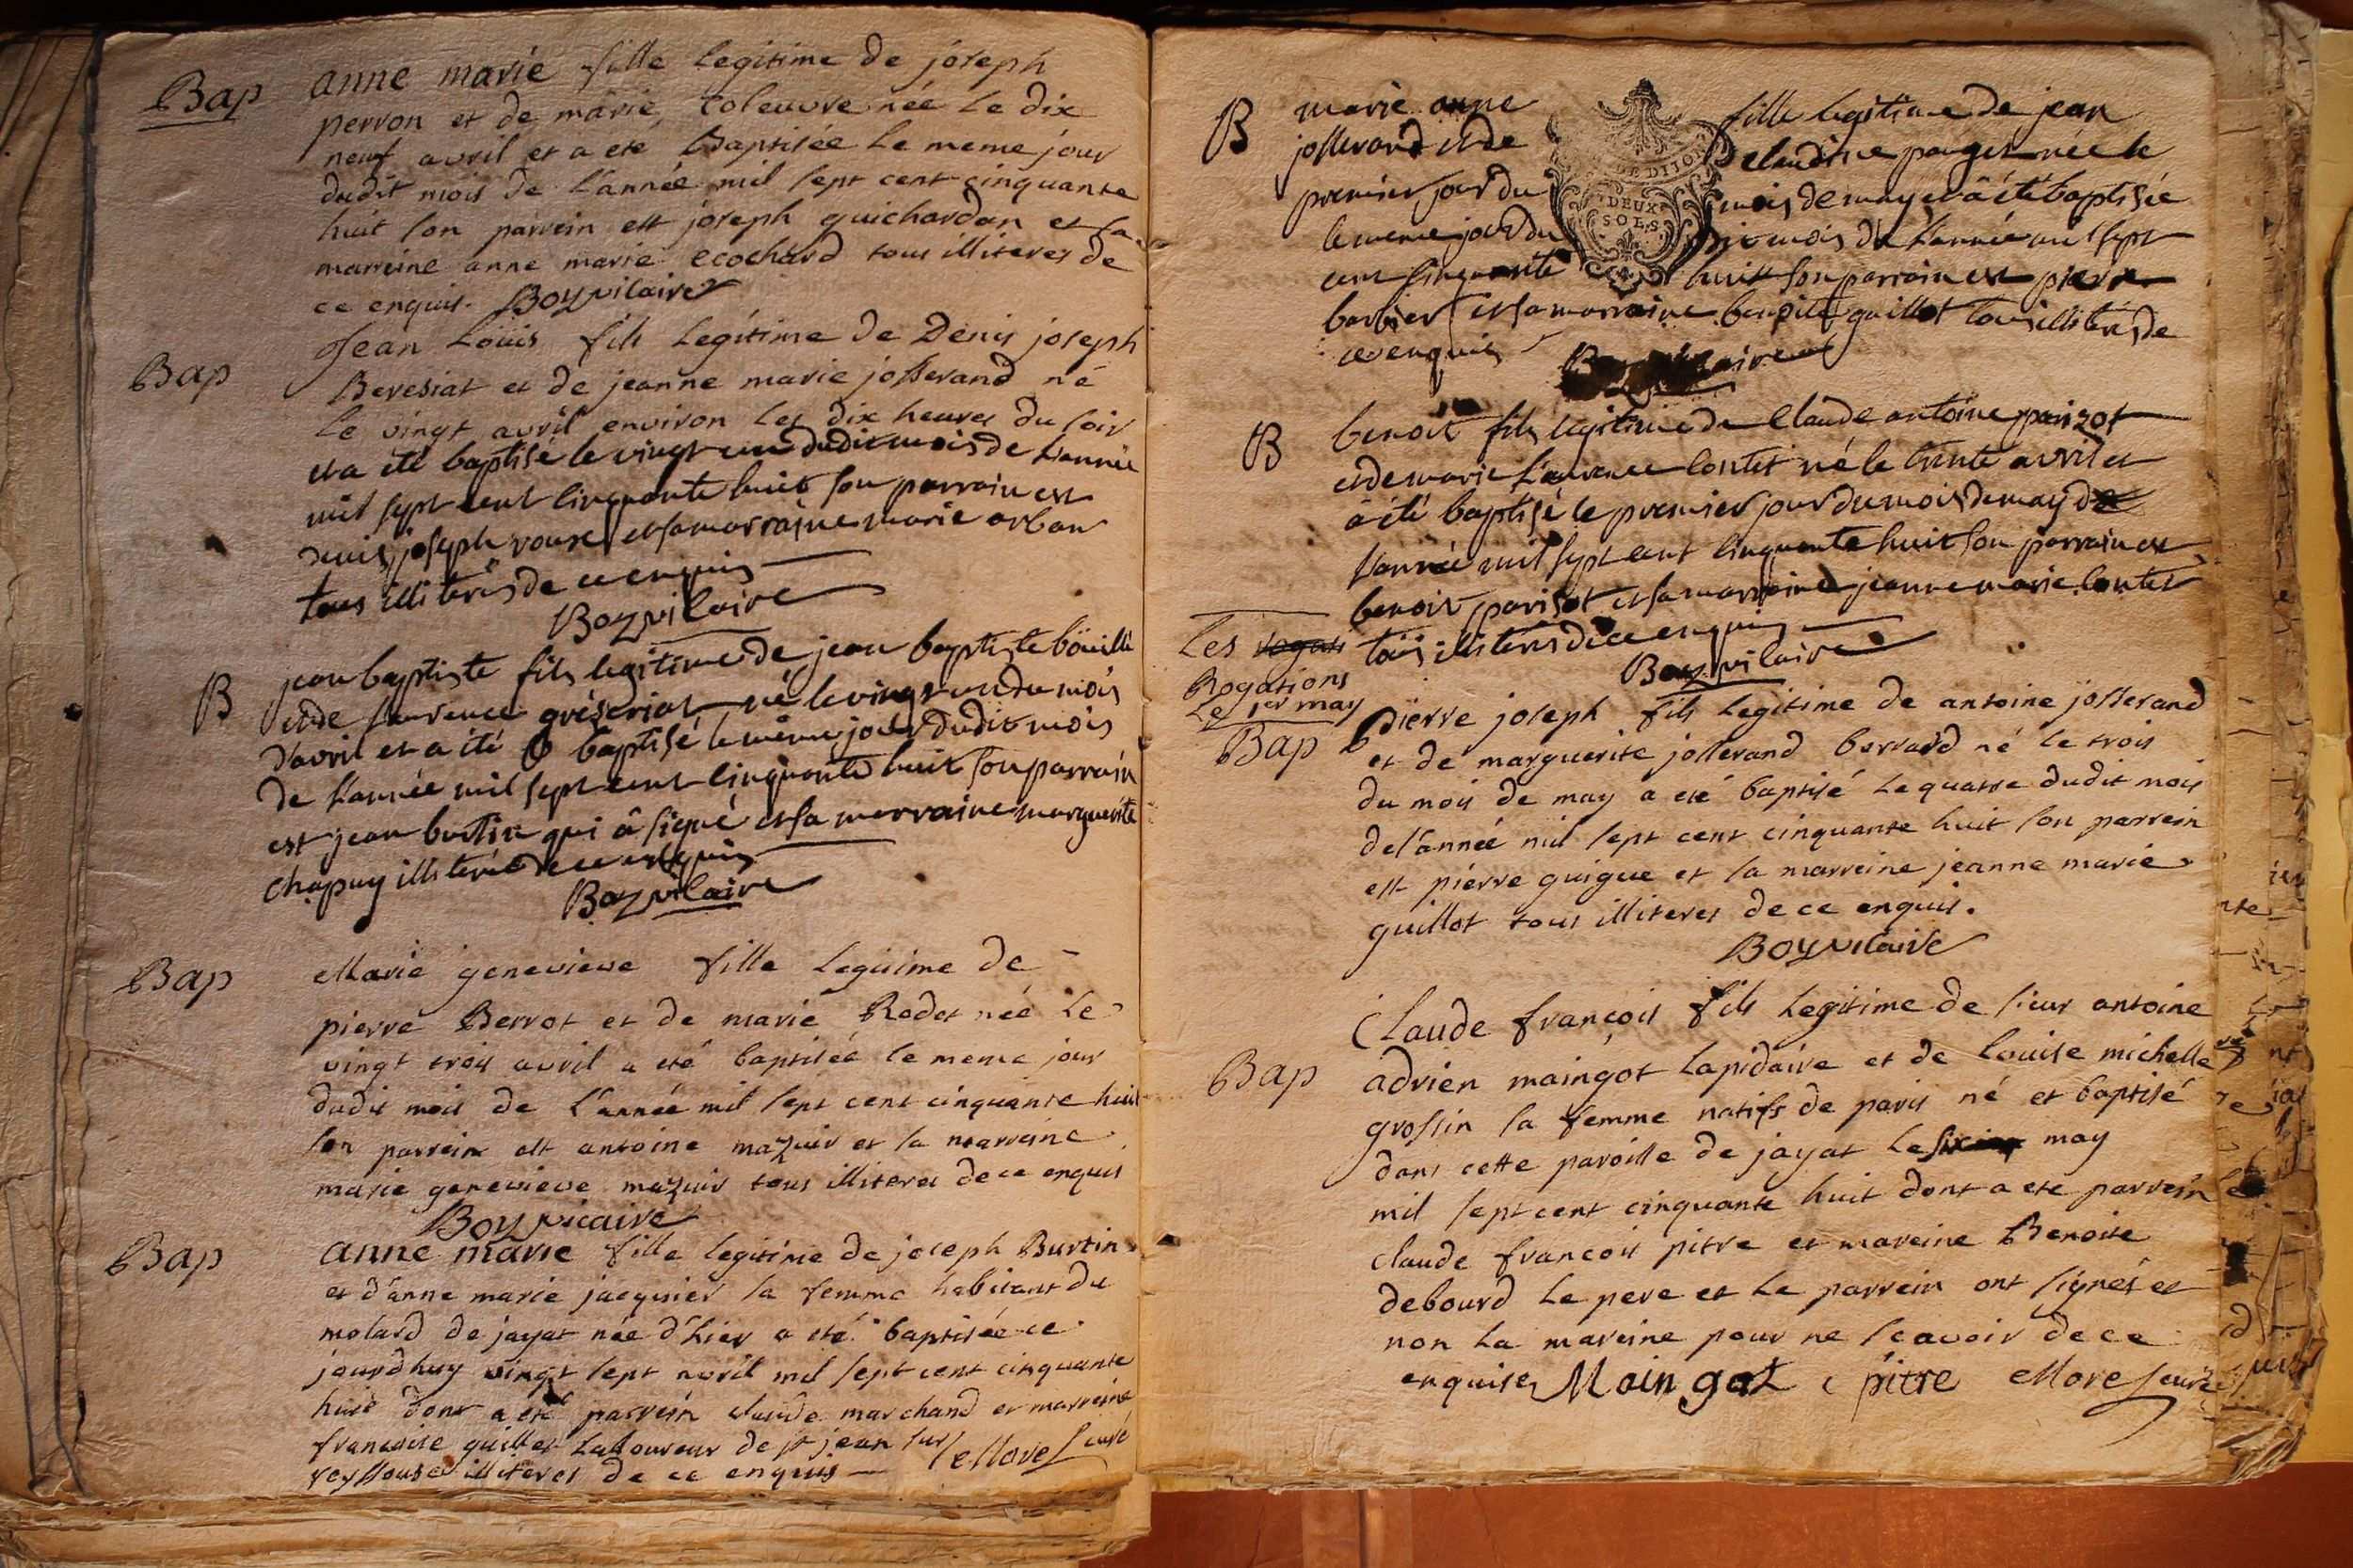 Bap
anne marie fille legitime de joseph
perron et de marie coleuvre née le dix
neuf avril et a eté Baptisée le meme jour
dudit mois de l'année mil sept cent cinquante
huit son parrein est joseph guichardan et sa
marreine anne marie ecochard tous illiteres de
ce enquis. Boy vicaire
Bap
Jean Loüis fils legitime de Denis joseph
Beresiat et de jeanne marie josserand né
le vingt avril environ les dix heures du soir
et a eté baptisé le vingt un dudit mois de l'année
mil sept cent cinquante huit son parrain est
denis joseph roux et sa marraine marie arban
tous illiterés de ce enquis
Boy vicaire
B
jean baptiste fils legitime de jean baptiste böuillé
et de laurence gréseriat né le vingt un du mois
d'avril et a été baptisé le même jour dudit mois
de l'année mil sept cent cinquante huit son parrain
est jean burtin qui â signé et sa marraine marguerite
chapuy illiterée de ce enquis
Boy vicaire
Bap
Marie genevieve fille legitime de
pierre Berrot et de marie Rodet née le
vingt trois avril a eté baptisée le meme jour
dudit mois de l'année mil sept cent cinquante huit
son parrein est antoine mazuir et sa marreine
marie genevieve mazuir tous illiteres de ce enquis
Boy vicaire
Bap
anne marie fille legitime de joseph Burtin
et d'anne marie jacquier sa femme habitant du
molard de jayat née d'hier a eté baptisée ce
jourdhuy vingt sept avril mil sept cent cinquante
huit dont a eté parrein claude marchand et marreine
francoise guillet laboureur de st jean sur
reyssouse illiteres de ce enquis Morel curé
B
marie anne fille legitime de jean
josserand et de claudine paget née le
premier jour du mois de may et â été baptisée
le meme jour du dit mois de l'année mil sept
cent cinquante huit son parrain est pierre
barbier et sa marraine benoite guillot tous illiterés de
ce enquis
Boy vicaire
DE DIJON
DEUX
SOLS
B
benoit fils legitime de Claude antoine parizot
et de marie laurence contet né le trente avril et
â été baptisé le premier jour du mois de may de
l'année mil sept cent cinquante huit son parrain est
benoit parisot et sa marraine jeanne marie contet
tous illiterés de ce enquis
Boy vicaire
Les rogati
Rogations
Le 1er may
Bap
Pierre joseph fils legitime de antoine josserand
et de marguerite josserand berrard né le trois
du mois de may a eté baptisé le quatre dudit mois
de l'année mil sept cent cinquante huit son parrein
est pierre guigue et sa marreine jeanne marie
guillot tous illiteres de ce enquis.
Boy vicaire
Bap
Claude françois fils legitime de sieur antoine
adrien maingot lapidaire et de Louise michelle
grossin sa femme natifs de paris né et baptisé
dans cette paroisse de jayat le six may
mil sept cent cinquante huit dont a ete parrein
claude francois pitre et mareine Benoite
debourd le pere et le parrein ont signés et
non la mareine pour ne scavoir de ce
enquise Maingot c pitre Morel curé